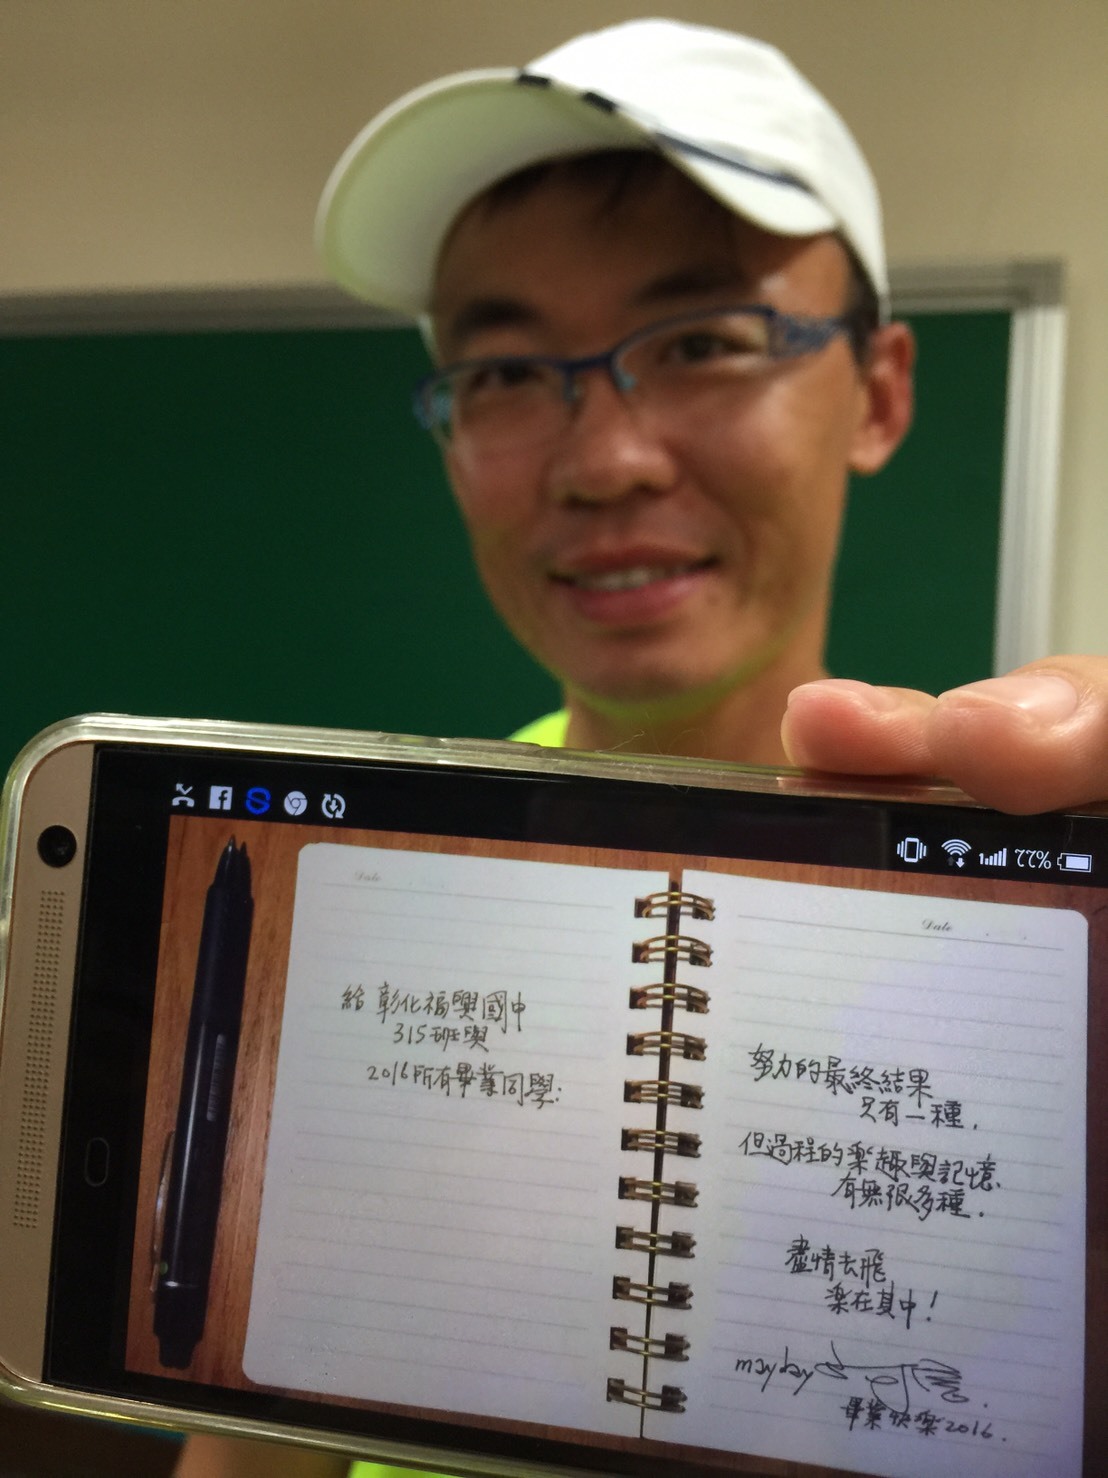 77%
Date
給 彰化福興國中
315班與
2016所有畢業同學:
Date
努力的最終結果
只有一種，
但過程的樂趣與記憶
有無很多種．
盡情去飛
樂在其中！
mayday
畢業快樂2016.